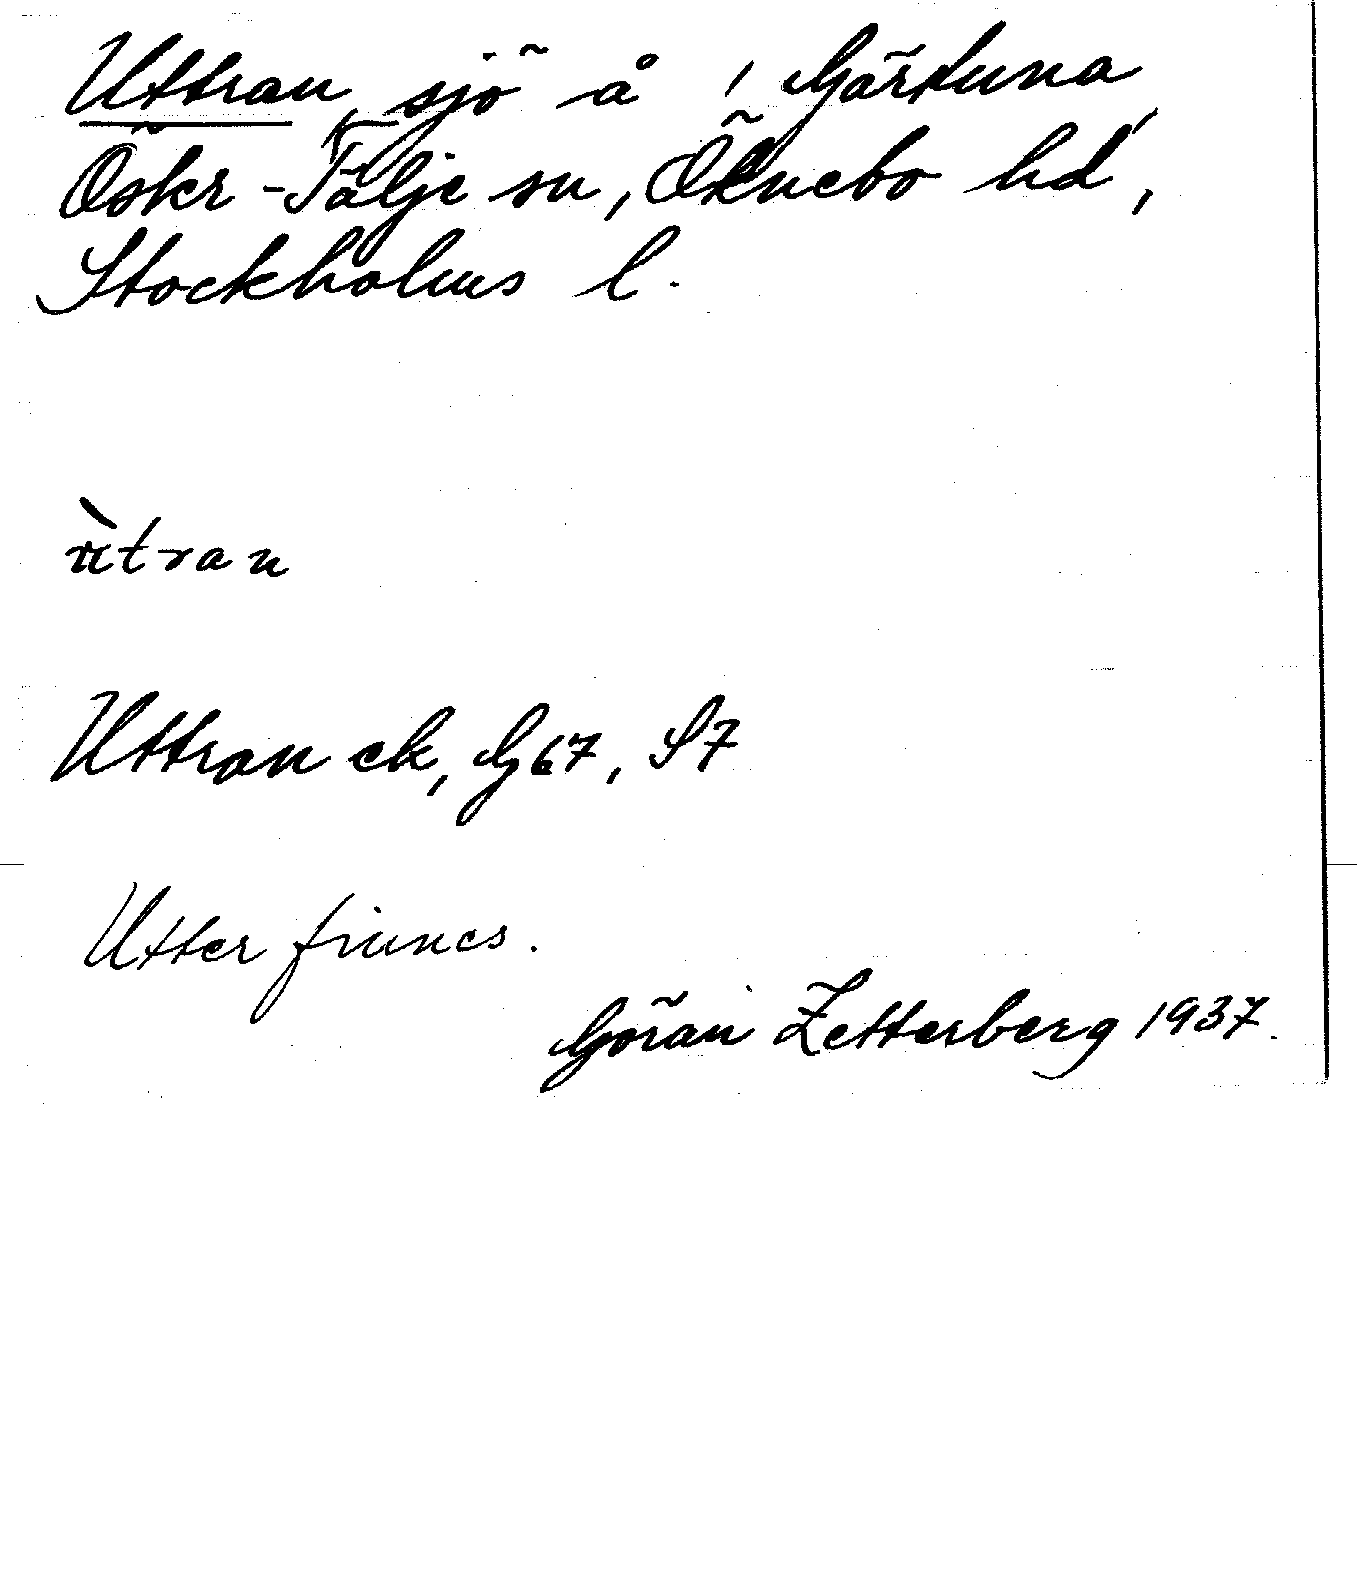 Uttran, sjö å / Gärtuna,
Öster-Tälje sn, Öknebo hd,
Stockholms l.
ùtran
Uttran ek, G67, S7
Utter finnes.
Göran Zetterberg 1937.